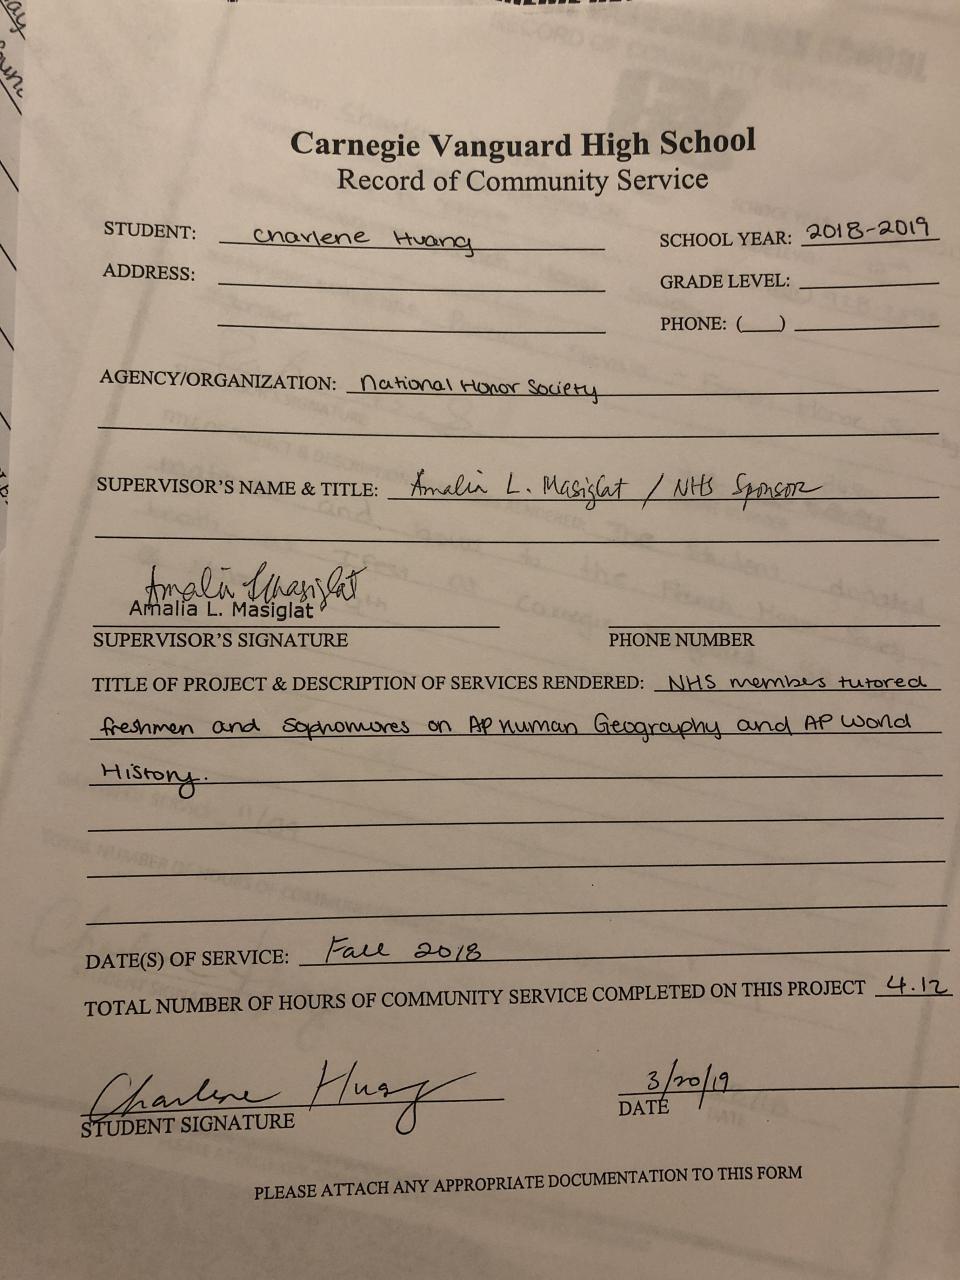 Carnegie Vanguard High School
Record of Community Service
STUDENT: Charlene Huang SCHOOL YEAR: 2018-2019
ADDRESS: GRADE LEVEL:
PHONE: ( )
AGENCY/ORGANIZATION: National Honor Society
SUPERVISOR'S NAME & TITLE: Amalia L. Masiglat / NHS Sponsor
Amalia L Masiglat
Amalia L. Masiglat
SUPERVISOR'S SIGNATURE PHONE NUMBER
TITLE OF PROJECT & DESCRIPTION OF SERVICES RENDERED: NHS members tutored
freshmen and sophomores on AP Human Geography and AP World
History.
DATE(S) OF SERVICE: Fall 2018
TOTAL NUMBER OF HOURS OF COMMUNITY SERVICE COMPLETED ON THIS PROJECT 4.12
Charlene Huang 3/20/19
STUDENT SIGNATURE DATE
PLEASE ATTACH ANY APPROPRIATE DOCUMENTATION TO THIS FORM